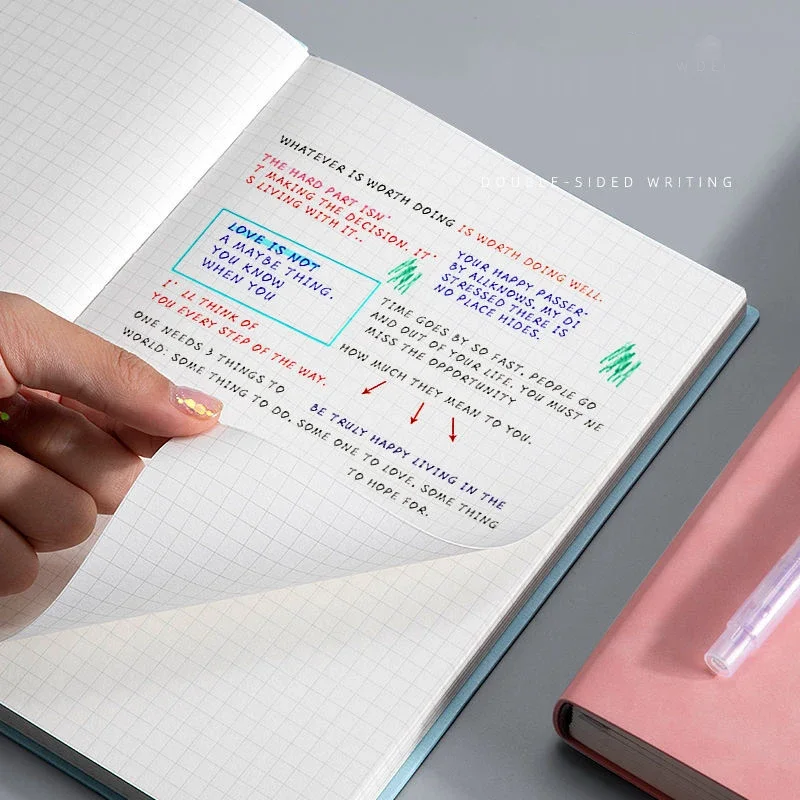 WDL
DOUBLE-SIDED WRITING
WHATEVER IS WORTH DOING IS WORTH DOING WELL.
THE HARD PART ISN'
T MAKING THE DECISION. IT'
S LIVING WITH IT..
YOUR HAPPY PASSER-
BY ALLKNOWS, MY DI
STRESSED THERE IS
NO PLACE HIDES.
LOVE IS NOT
A MAYBE THING.
YOU KNOW
WHEN YOU
TIME GOES BY SO FAST, PEOPLE GO
AND OUT OF YOUR LIFE. YOU MUST NE
MISS THE OPPORTUNITY
HOW MUCH THEY MEAN TO YOU.
I' LL THINK OF
YOU EVERY STEP OF THE WAY.
ONE NEEDS 3 THINGS TO
BE TRULY HAPPY LIVING IN THE
WORLD: SOME THING TO DO, SOME ONE TO LOVE, SOME THING
TO HOPE FOR.